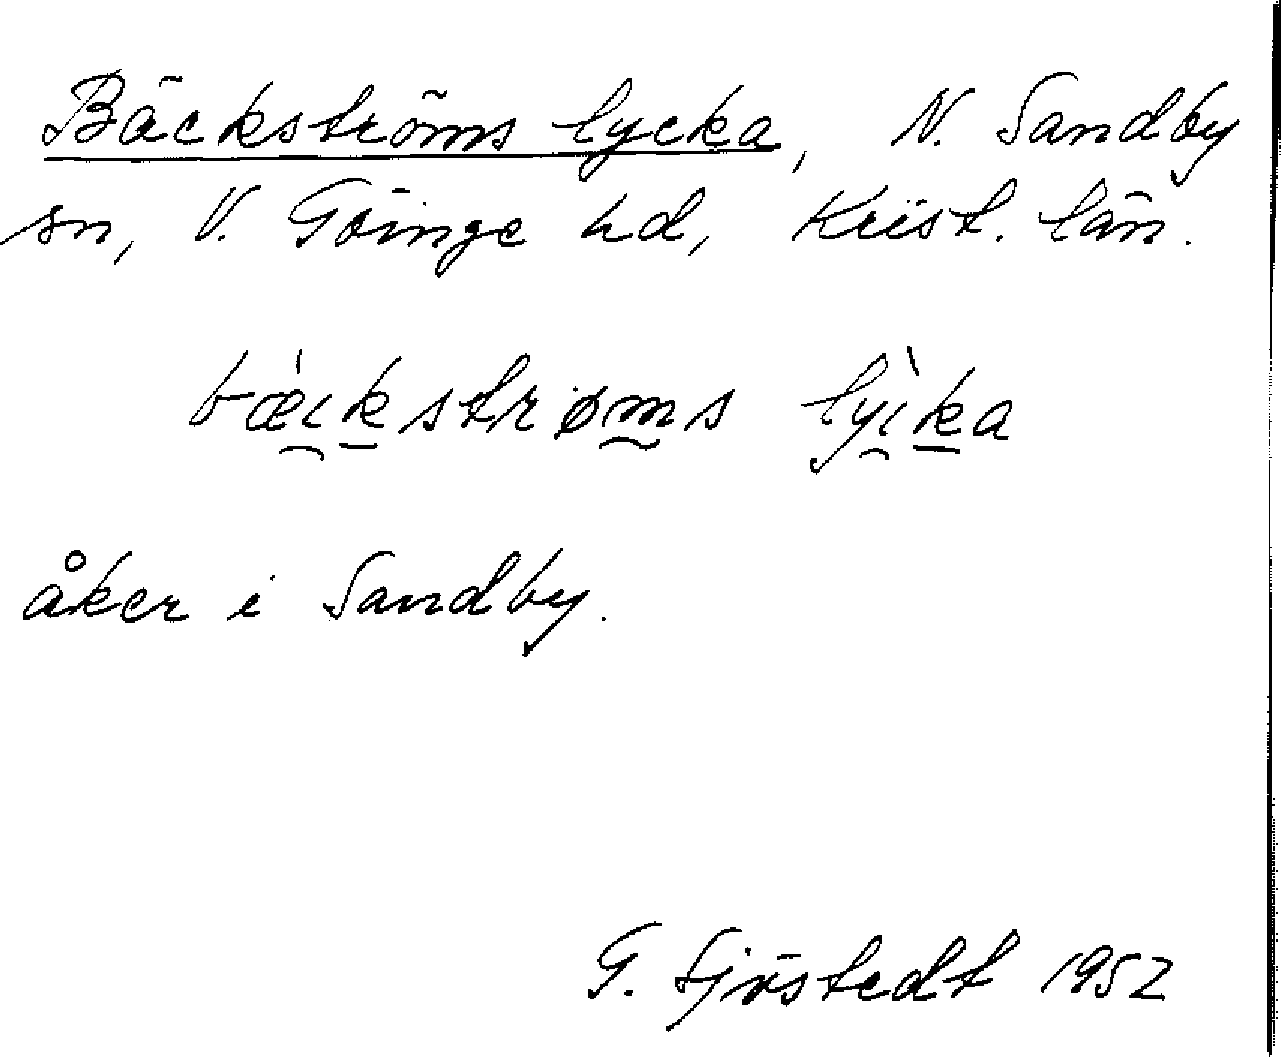 Bäckströms lycka, N. Sandby
sn, V. Göinge hd, Krist. län.
bæ̀ıkstrøms lyı̀ka
åker i Sandby.
G. Sjöstedt 1952